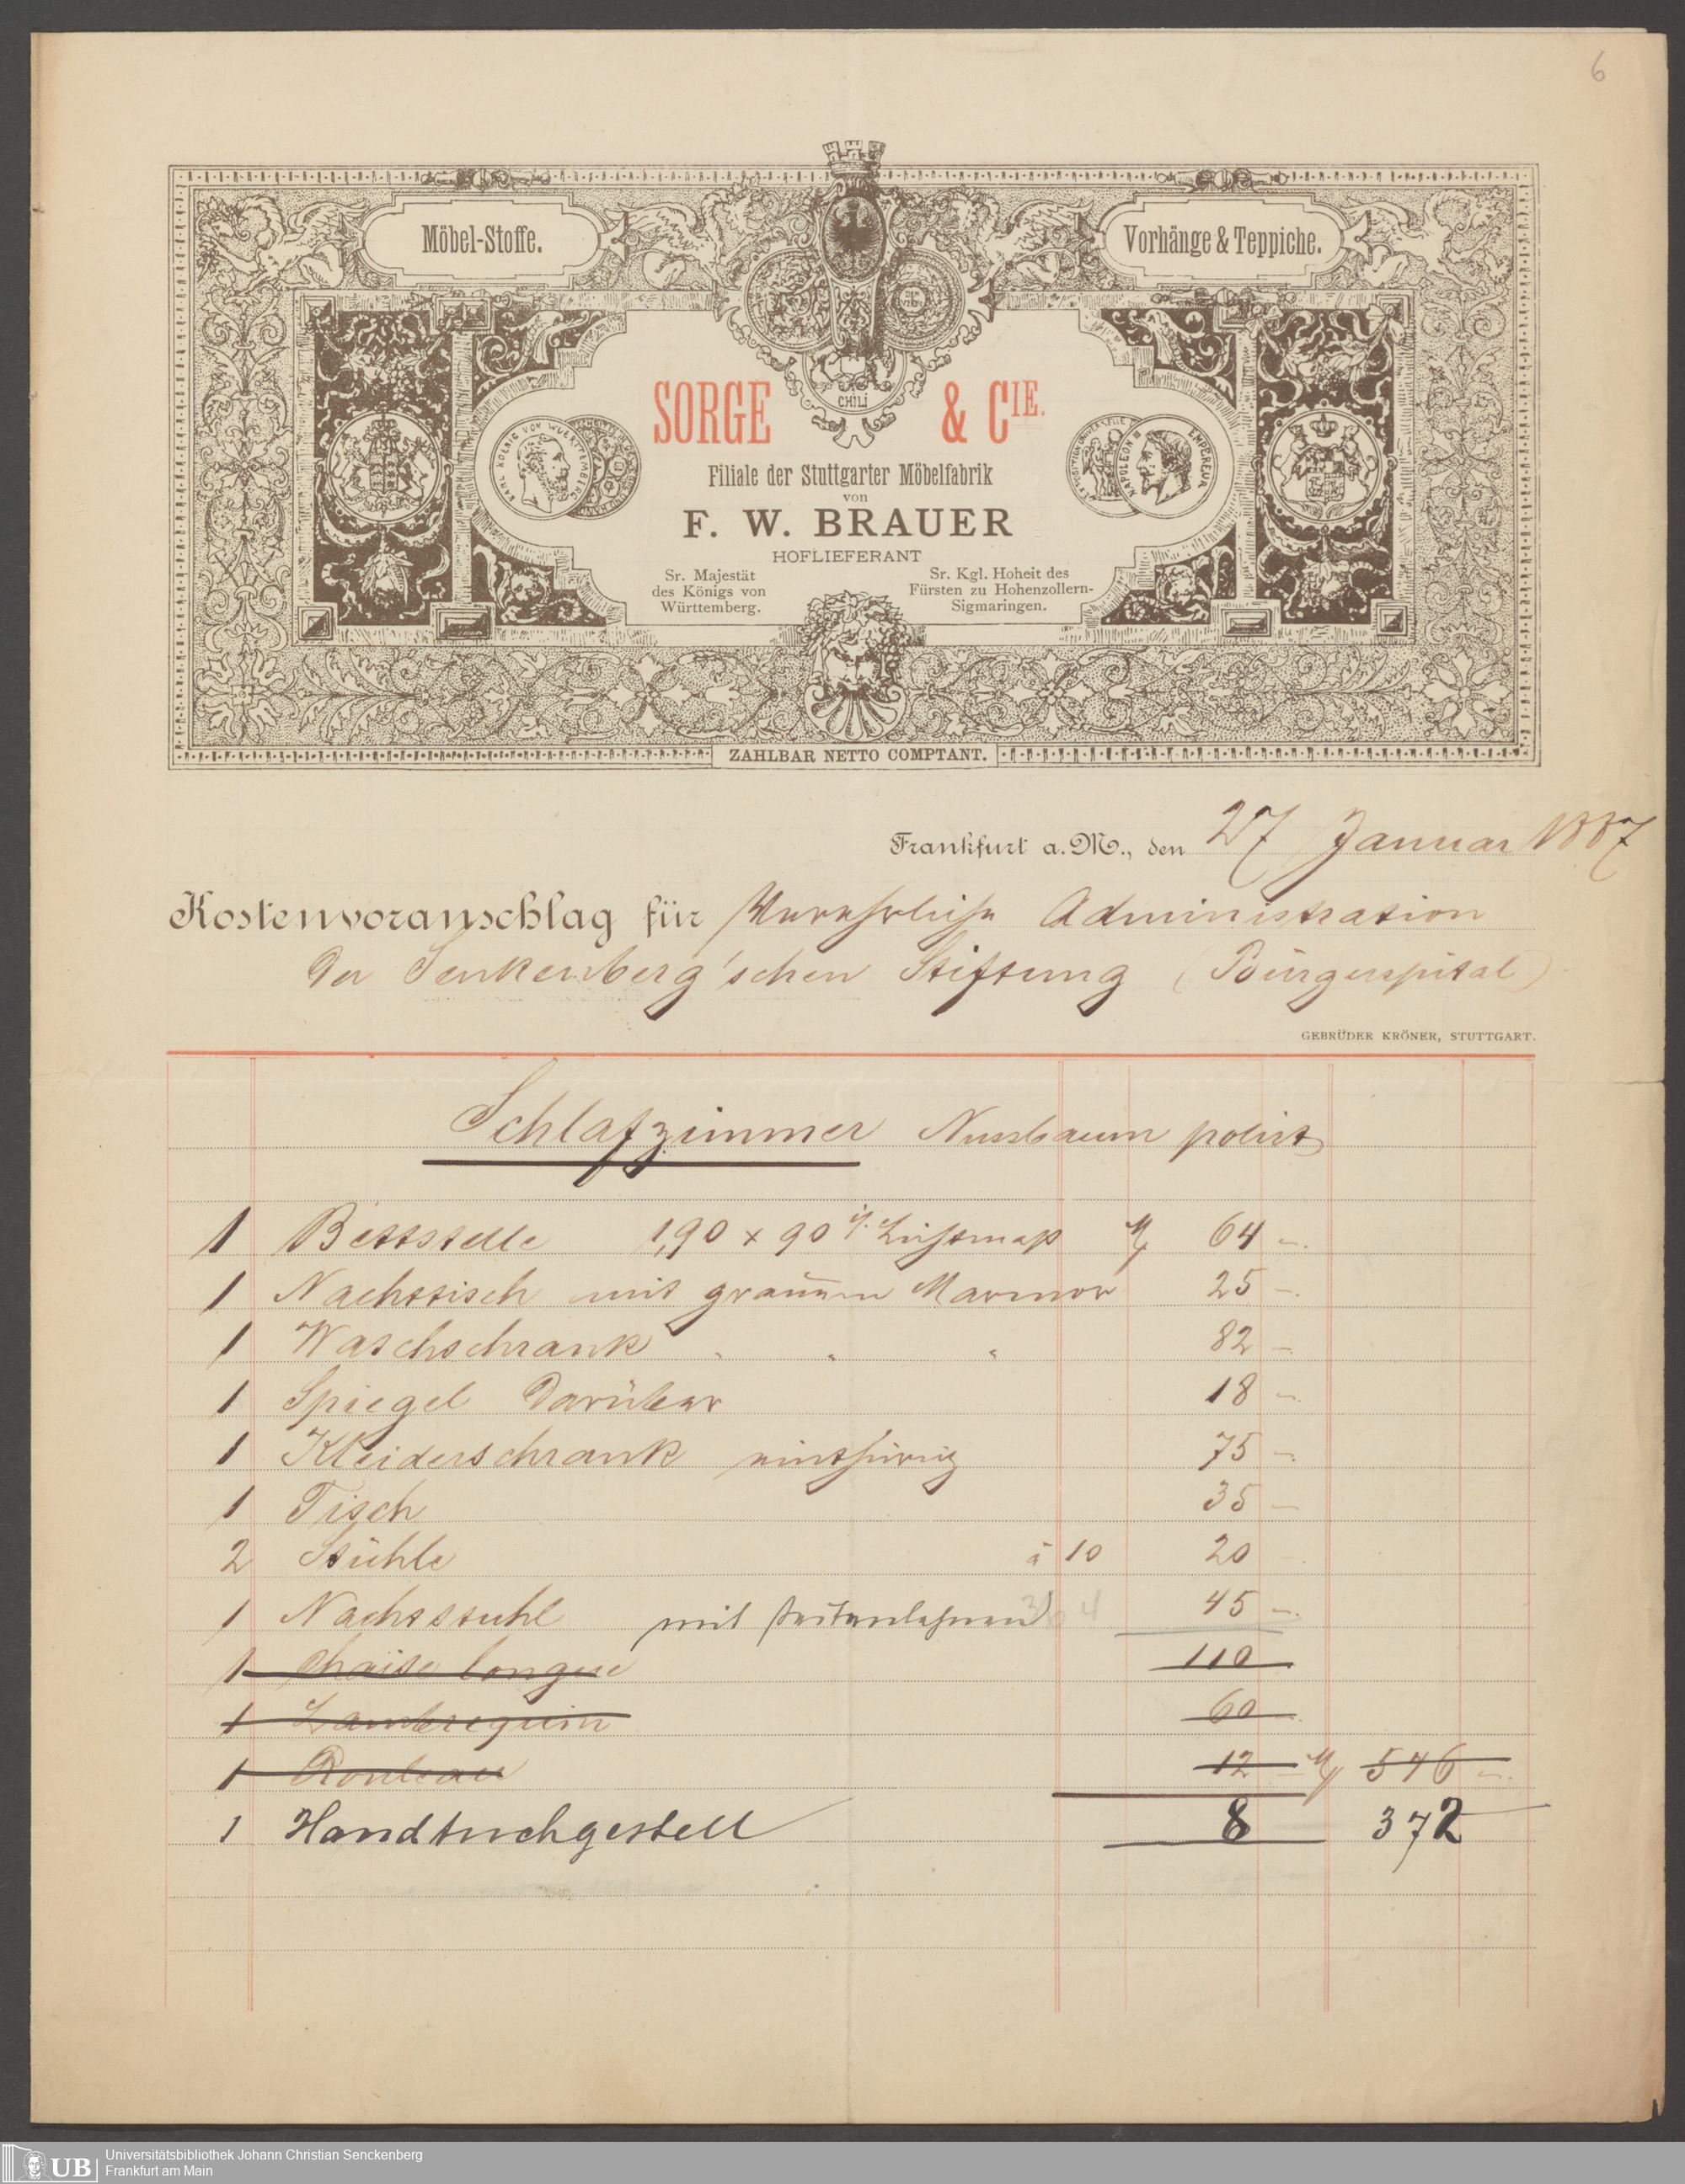 6
Möbel-Stoffe.
Vorhänge & Teppiche.
CHILI
SORGE & CIE.
KARL KOENIG VON WUERTTEMBERG
NAPOLEON III EMPEREUR
Filiale der Stuttgarter Möbelfabrik
von
F. W. BRAUER
HOFLIEFERANT
Sr. Majestät
des Königs von
Württemberg.
Sr. Kgl. Hoheit des
Fürsten zu Hohenzollern-
Sigmaringen.
ZAHLBAR NETTO COMPTANT.
Frankfurt a. M., den 27 Januar 1887
Kostenvoranschlag für Verehrliche Administration
der Senkenberg'schen Stiftung (Bürgerspital)
GEBRÜDER KRÖNER, STUTTGART.
Schlafzimmer Nussbaum polirt
1 Bettstelle 1,90 x 90 Lichtmaß M 64 –.
1 Nachttisch mit grauem Marmor 25 –.
1 Waschschrank " " " 82 –
1 Spiegel darüber 18 –
1 Kleiderschrank einthürig 75 –
1 Tisch 35 –
2 Stühle à 10 20
1 Nachtstuhl mit Seitenlehnen 364 45 –.
1 Chaise longue 110
1 Lambrequin 60
1 Rouleau 12 M 546 –.
1 Handtuchgestell 8 372
UB
Universitätsbibliothek Johann Christian Senckenberg
Frankfurt am Main